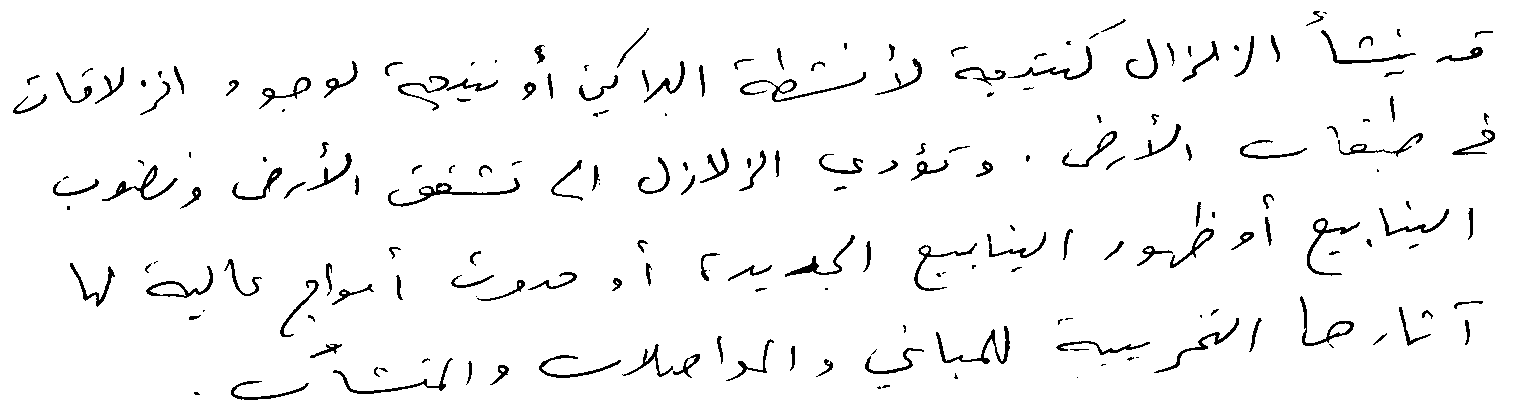 قد ينشأ الزلزال كنتيجة لأنشطة البراكين أو نتيجة لوجود انزلاقات
في طبقات الأرض . وتؤدي الزلازل الى تشقق الأرض ونضوب
الينابيع أو ظهور الينابيع الجديدة أو حدوث أمواج عالية لها
آثارها التخريبية للمباني والمواصلات والمنشآت .